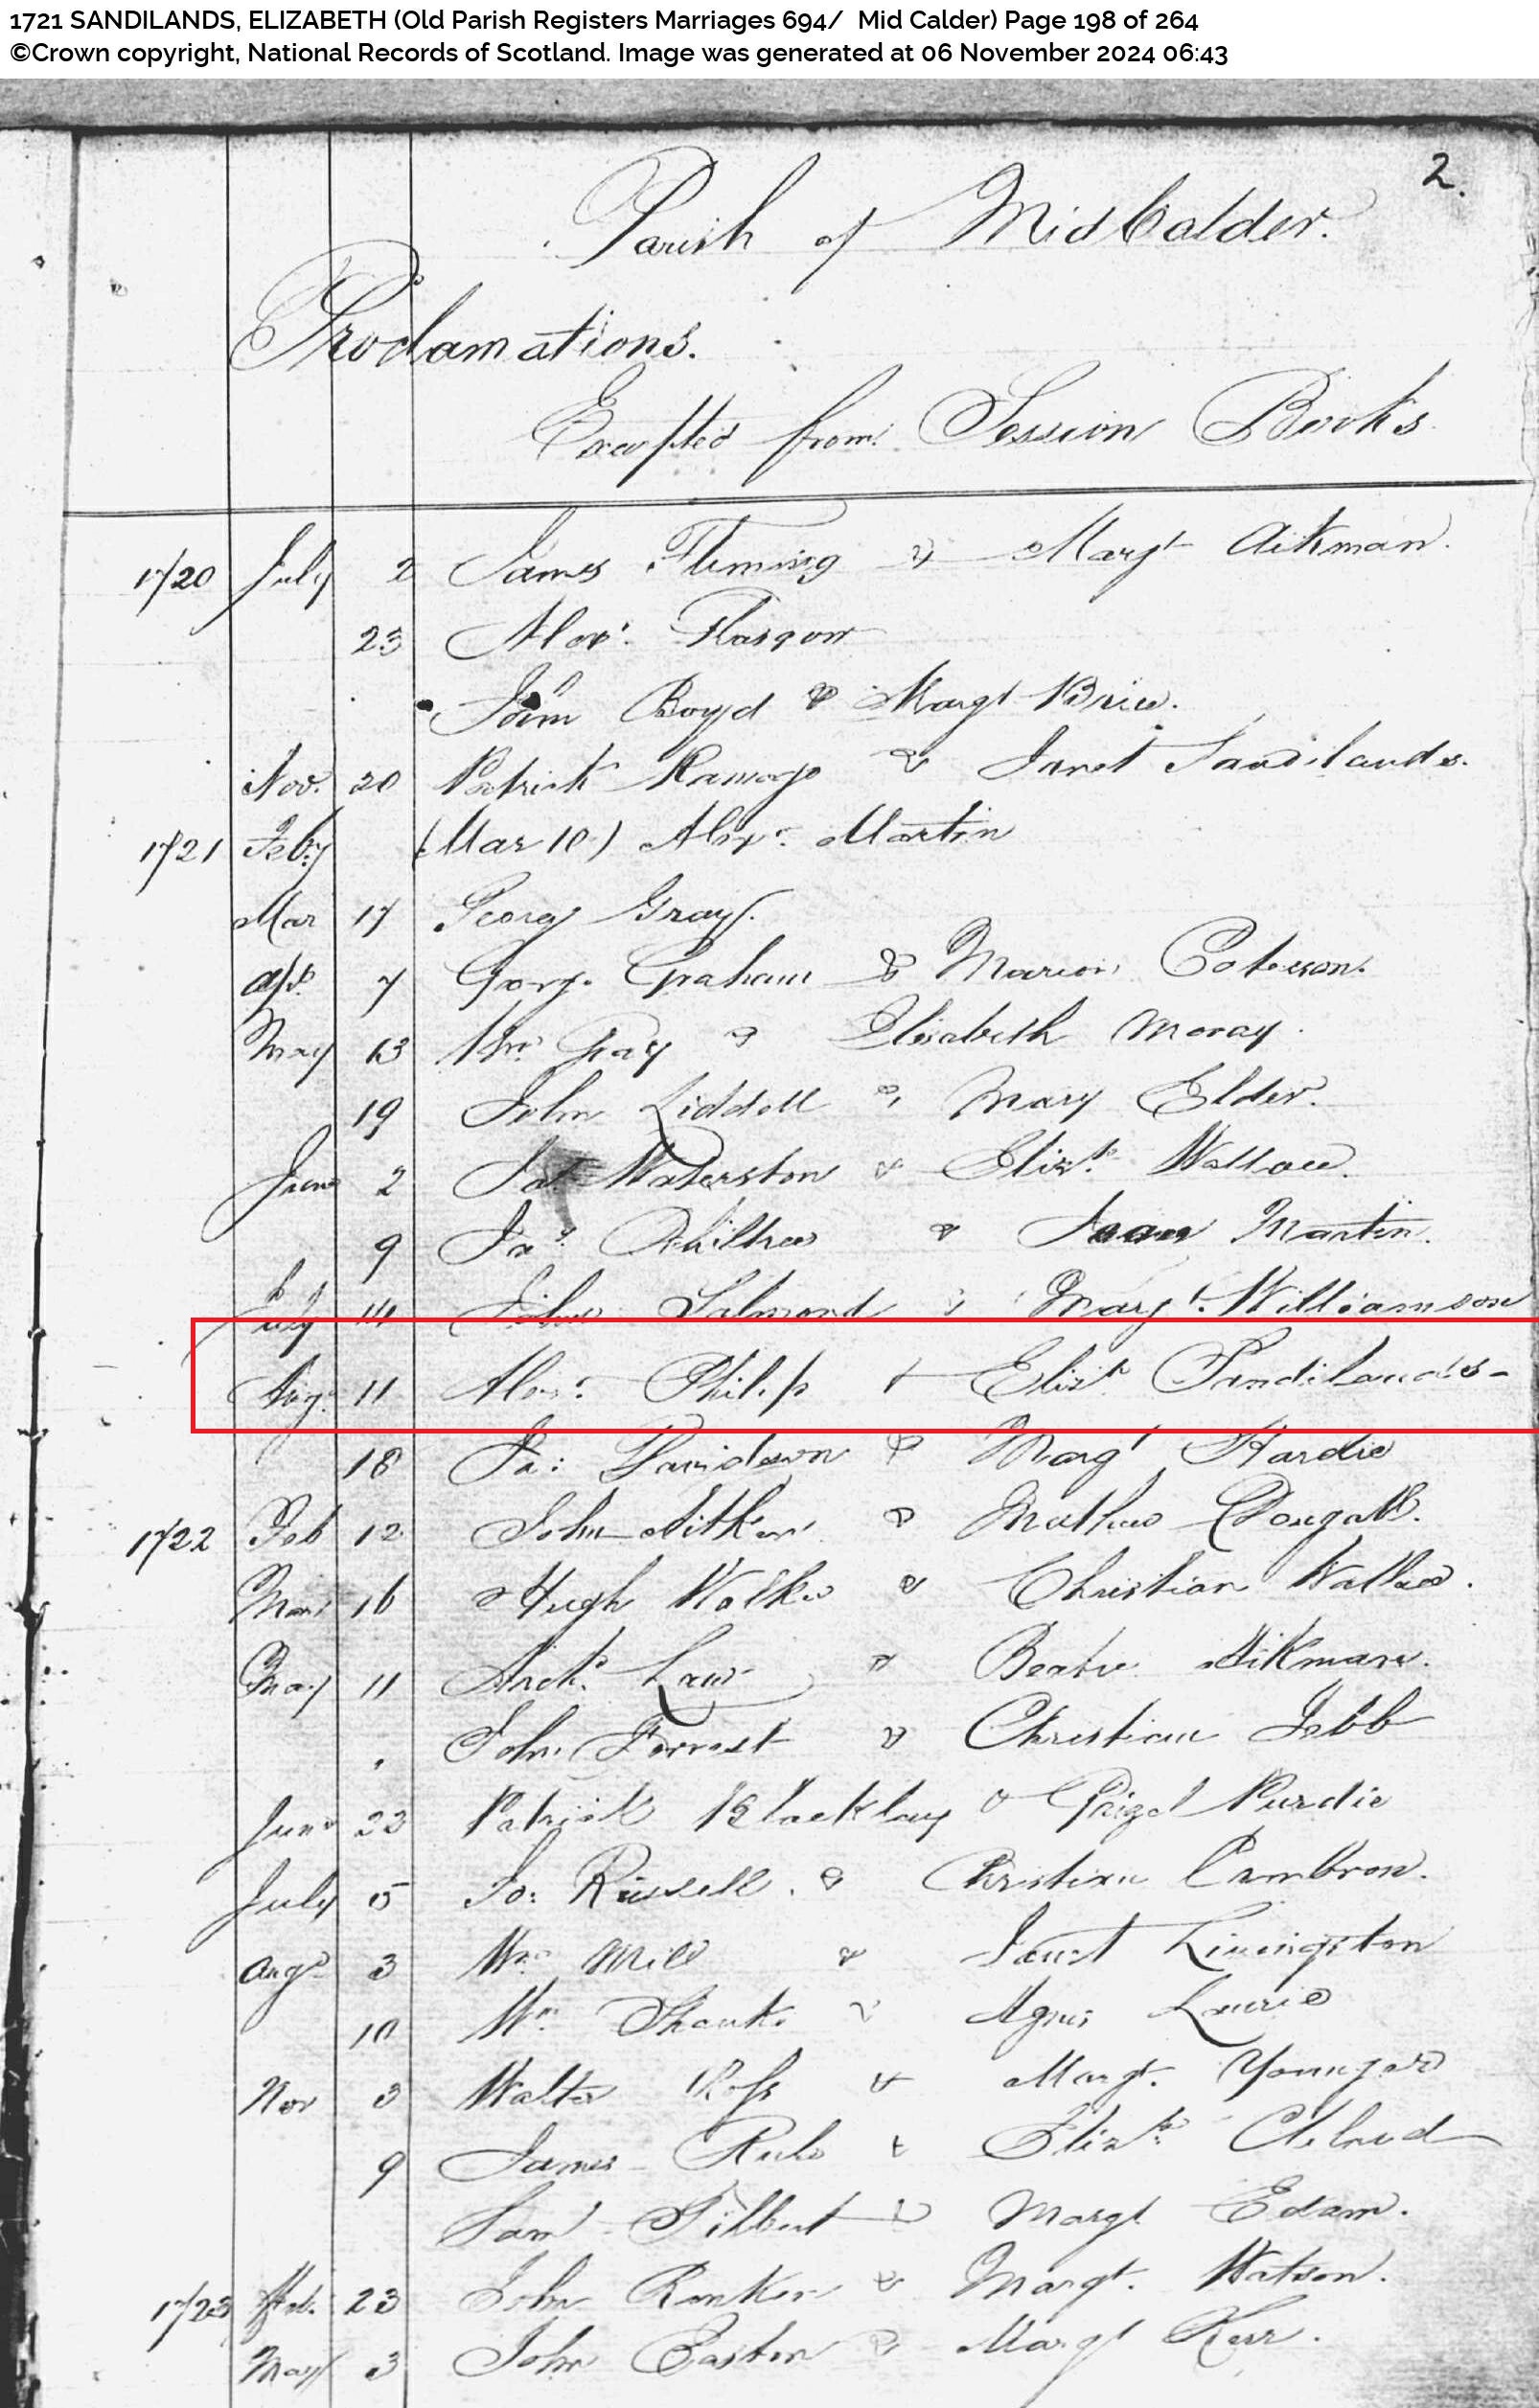 1721 SANDILANDS, ELIZABETH (Old Parish Registers Marriages 694/ Mid Calder) Page 198 of 264
©Crown copyright, National Records of Scotland. Image was generated at 06 November 2024 06:43
2.
Parish of Mid Calder.
Proclamations.
from Session Books
1720 July 2 James Fleming & Margt Aikman.
23 Alexr. Glasgow
John Boyd & Margt Brice.
Nov. 20 Patrick Ramage & Janet Sandilands.
1721 Feby (Mar 10) Alexr. Martin
Mar 17 George Gray.
Apl. 7 George Graham & Marion
May 13 Wm Gray & Elisabeth Moray.
19 John Liddell & Mary Elder.
June 2 Ja. Waterston & Elizth Wallace.
9 Jas. & Jean Martin.
July 14 Salmond & Margt. Williamson
Aug. 11 Alexr. Philip & Elizth Sandilands -
18 Ja: Davidson & Margt Hardie
1722 Feb 12 John Aitken & Dougall.
Mar 16 Hugh Walker & Christian Wallace.
May 11 Archd. Law & Aikman.
John Forrest & Christian
June 22 Patrick & Grizel Purdie
July 5 Jo: Russell & Christian
Augt 3 Wm. Mill & Janet Livingston
10 Wm. Shanks & Agnes Laurie
Nov 3 Walter Ross & Margt. Younger
9 James & Elizth
Saml & Margt Edam.
1723 23 John & Margt. Watson.
May 3 John Easton & Margt Kerr.